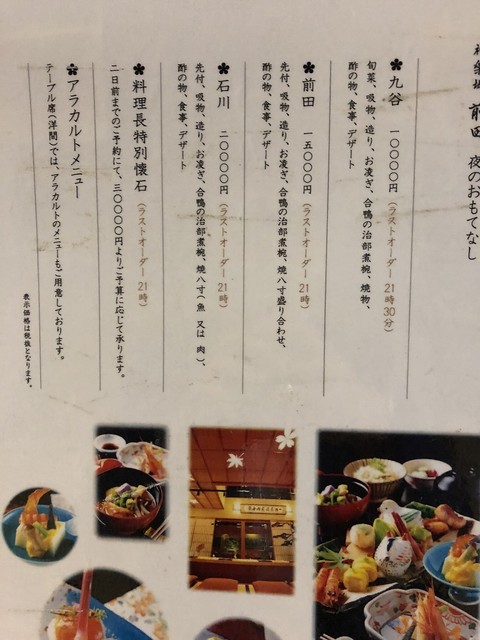 前田 夜のおもてなし
九谷 一〇〇〇〇円（ラストオーダー 21時30分）
旬菜、吸物、造り、お凌ぎ、合鴨の治部煮椀、焼物、
酢の物、食事、デザート
前田 一五〇〇〇円（ラストオーダー 21時）
先付、吸物、造り、お凌ぎ、合鴨の治部煮椀、焼八寸盛り合わせ、
酢の物、食事、デザート
石川 二〇〇〇〇円（ラストオーダー 21時）
先付、吸物、造り、お凌ぎ、合鴨の治部煮椀、焼八寸（魚 又は 肉）、
酢の物、食事、デザート
料理長特別懐石（ラストオーダー 21時）
二日前までのご予約にて、三〇〇〇〇円よりご予算に応じて承ります。
アラカルトメニュー
テーブル席（洋間）では、アラカルトのメニューもご用意しております。
表示価格は税抜となります。